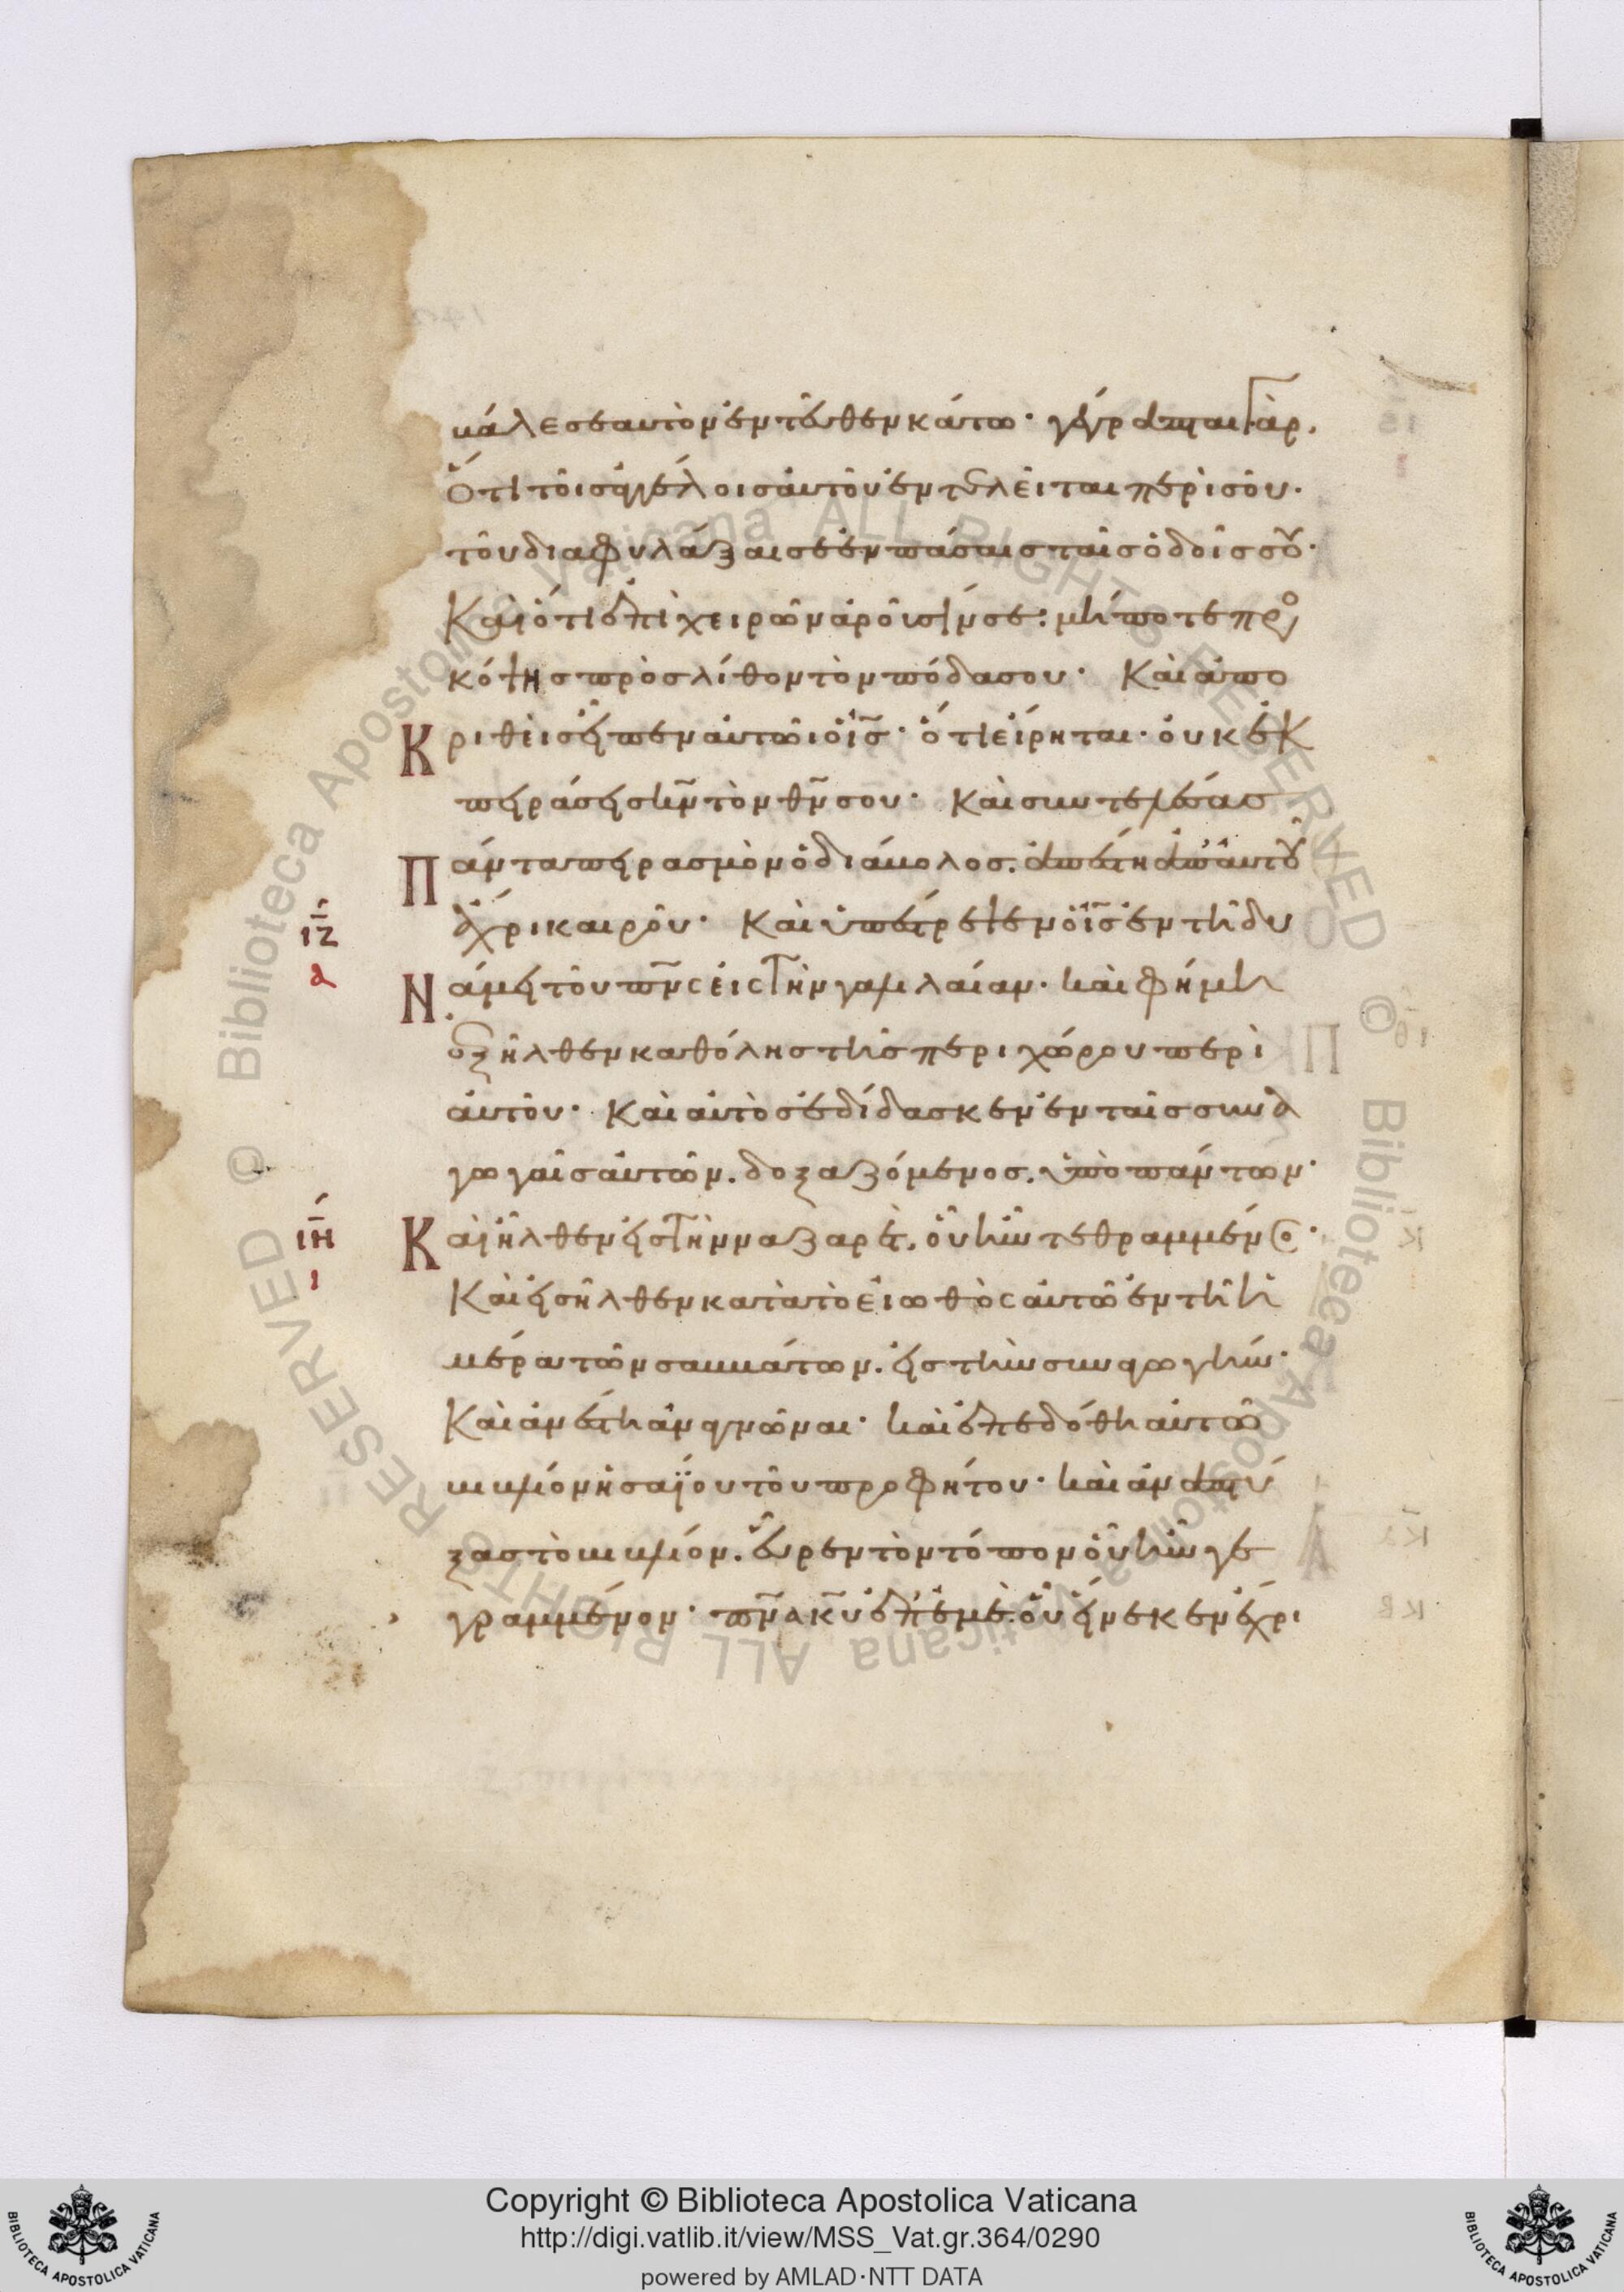 βάλε σεαυτὸν ἐντεῦθεν κάτω· γέγραπται γὰρ.
ὅτι τοῖς ἀγγέλοις αὐτοῦ ἐντελεῖται περὶ σοῦ·
τοῦ διαφυλάξαι σε ἐν πάσαις ταῖς ὁδοῖς σου·
Καὶ ὅτι ἐπὶ χειρῶν ἀροῦσίν σε: μήποτε προσ
κόψης πρὸς λίθον τὸν πόδα σου· Καὶ ἀπο
Κριθεὶς εἶπεν αὐτῶι ὁ ις̅· ὅτι εἴρηται· οὐκ ἐκ
πειράσεις κν̅ τὸν θν̅ σου· Καὶ συντελέσας
Πάντα πειρασμὸν ὁ διάβολος. ἀπέστη ἀπ' αὐτοῦ
ἄχρι καιροῦ· Καὶ ὑπέστρεψεν ὁ ις̅ ἐν τῆ δυ
ιζ̅
α
Νάμει τοῦ πν̅ς εἰς τὴν γαλιλαίαν· καὶ φήμη
ἐξῆλθεν καθόλης τῆς περιχώρου περὶ
αὐτοῦ· Καὶ αὐτὸς ἐδίδασκεν ἐν ταῖς συνα
γωγαῖς αὐτῶν. δοξαζόμενος. ὑπὸ πάντων·
ιη̅
ι
Καὶ ἦλθεν εἰς τὴν ναζαρέτ. οὗ ἦν τεθραμμένος·
Καὶ εἰσῆλθεν κατὰ τὸ εἰωθὸς αὐτῶ ἐν τῆ ἡ
μέρα τῶν σαββάτων. εἰς τὴν συναγωγήν·
Καὶ ἀνέστη ἀναγνῶναι· καὶ ἐπεδόθη αὐτῶ
βιβλίον ἡσαΐου τοῦ προφήτου· καὶ ἀναπτύ
ξας τὸ βιβλίον. εὗρεν τὸν τόπον οὗ ἦν γε
γραμμένον· πν̅α κυ̅ ἐπ' ἐμέ. οὗ εἵνεκεν ἔχρι
Copyright © Biblioteca Apostolica Vaticana
http://digi.vatlib.it/view/MSS_Vat.gr.364/0290
powered by AMLAD·NTT DATA
BIBLIOTECA APOSTOLICA VATICANA
BIBLIOTECA APOSTOLICA VATICANA
© Biblioteca Apostolica Vaticana ALL RIGHTS RESERVED
© Biblioteca Apostolica Vaticana ALL RIGHTS RESERVED